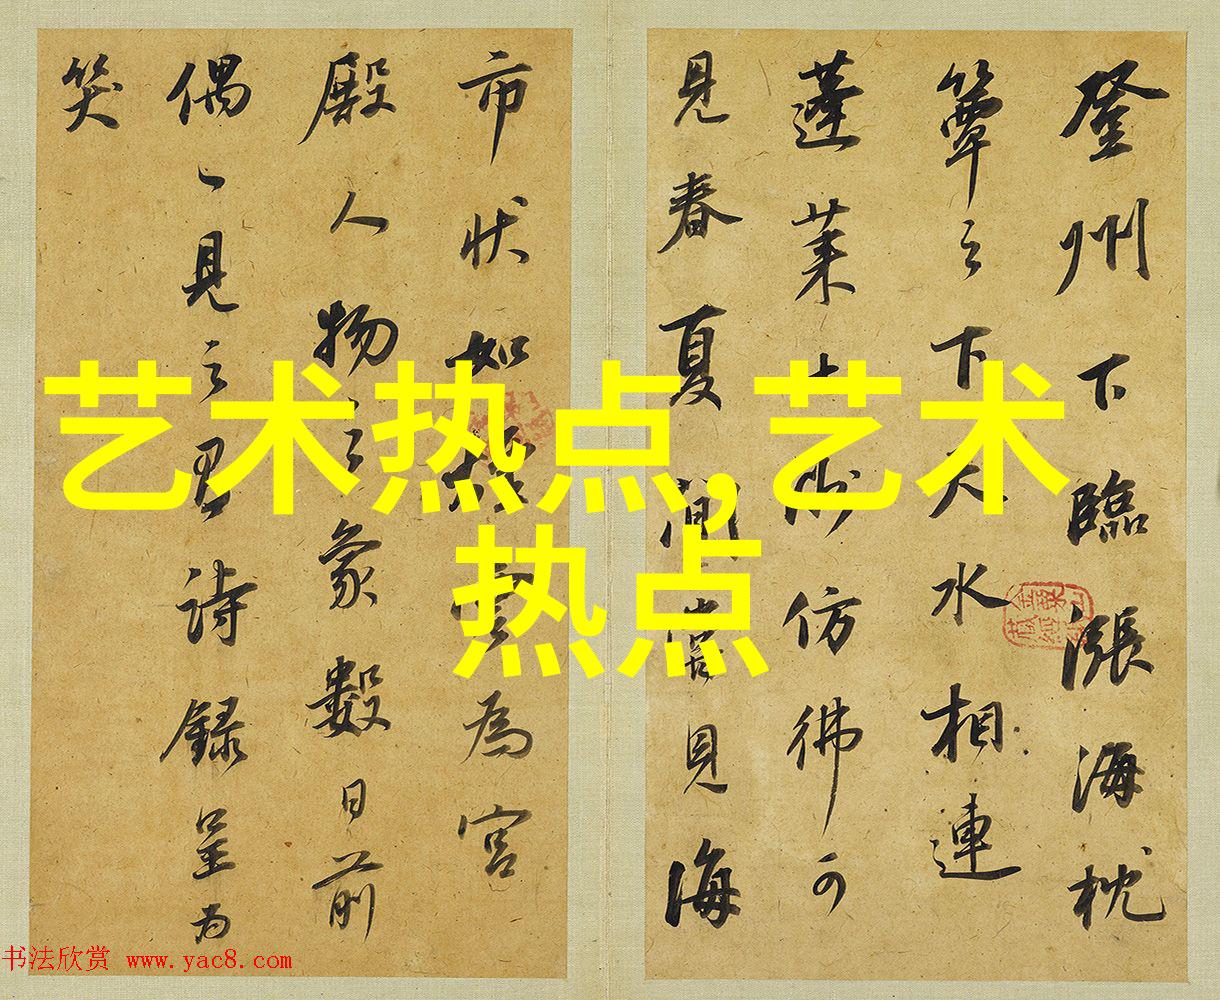 登州下臨漲海枕
簟之下天水相連
蓬莱仿彿可
見春夏間常見海
市狀如樓臺為宮
殿人物之象數日前
偶一見之有詩録呈為
笑
艺术热点,艺术
热点
书法欣赏 www.yac8.com